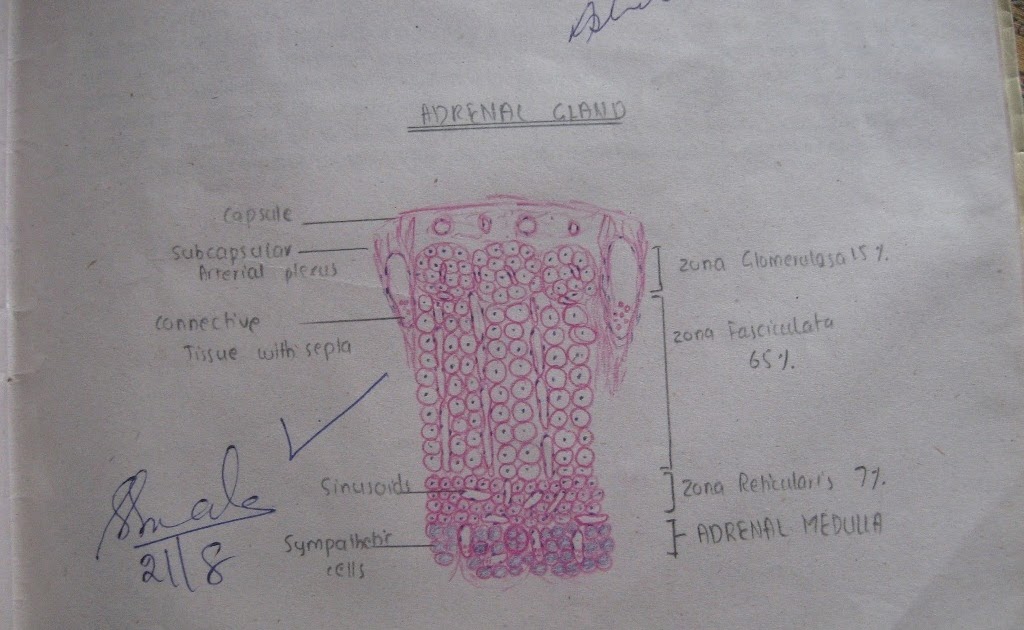 ADRENAL GLAND
capsule
subcapsular
Arterial plexus
connective
Tissue with septa
Sinusoids
Sympathetic
cells
zona Glomerulosa 15%.
zona Fasciculata
65%.
zona Reticularis 7%.
ADRENAL MEDULLA
21/8